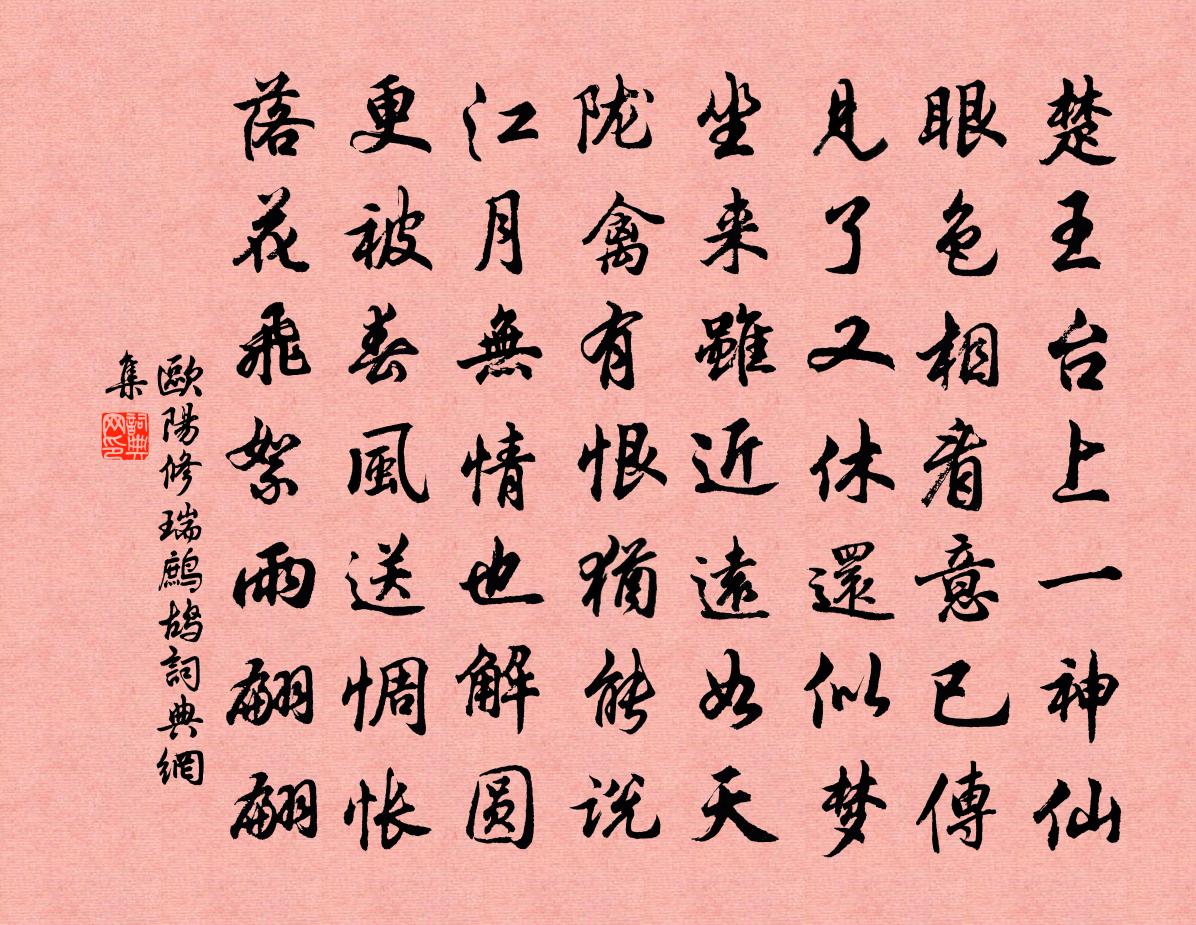 楚王台上一神仙
眼色相看意已傳
見了又休還似梦
坐来雖近遠如天
陇禽有恨猶能说
江月無情也解圆
更被春風送惆怅
落花飛絮雨翩翩
歐陽修瑞鷓鴣詞典網
集
詞典
网印